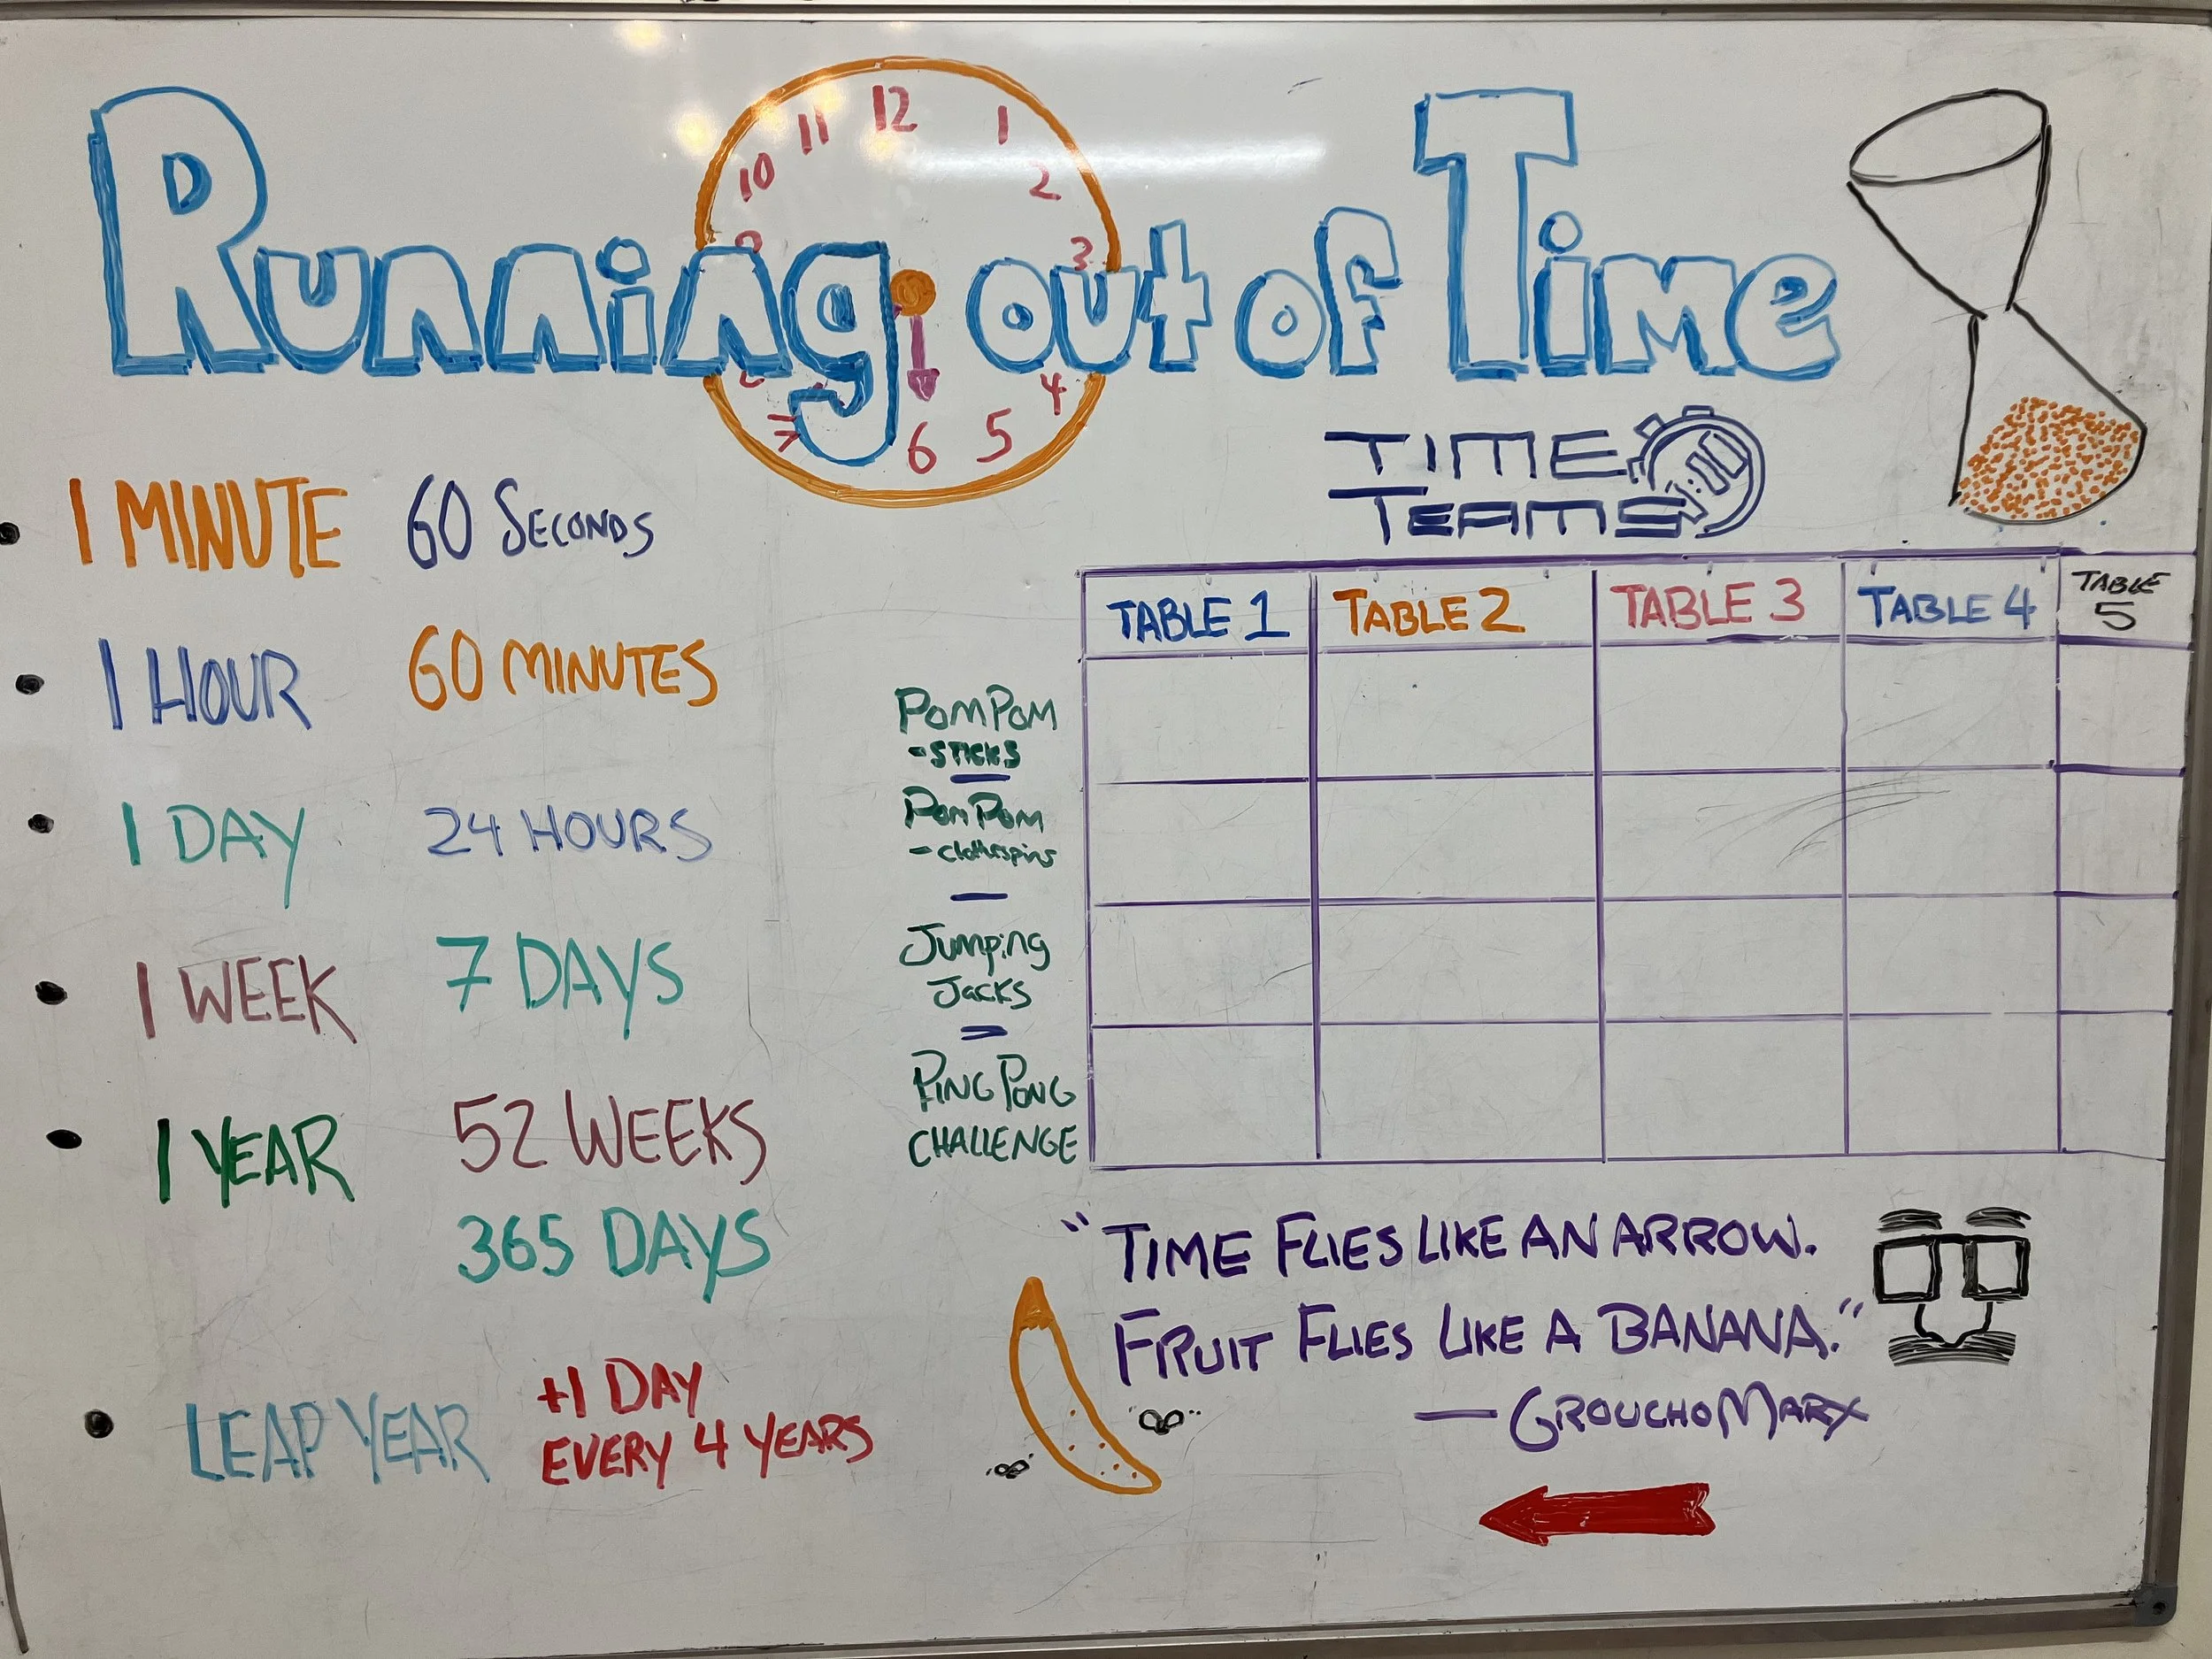 Running out of Time
12
1
2
3
4
5
6
10
11
TIME
TEAMS
1 MINUTE 60 SECONDS
1 HOUR 60 MINUTES
1 DAY 24 HOURS
1 WEEK 7 DAYS
1 YEAR 52 WEEKS
365 DAYS
LEAP YEAR +1 DAY
EVERY 4 YEARS
TABLE 1 TABLE 2 TABLE 3 TABLE 4 TABLE
5
POMPOM
- STICKS
POMPOM
- clothespins
Jumping
Jacks
PING PONG
CHALLENGE
"TIME FLIES LIKE AN ARROW.
FRUIT FLIES LIKE A BANANA."
— GROUCHO MARX